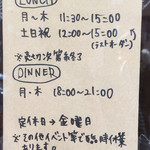 LUNCH
月〜木 11:30〜15:00
土日祝 12:00〜15:00
(ラストオーダー)
※売切次第終了
DINNER
月-木 18:00〜21:00
定休日→金曜日
※その他イベント等で臨時休業
あります。